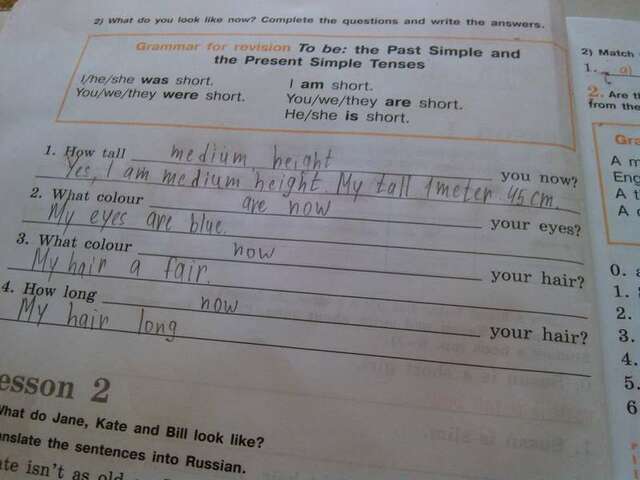 2) What do you look like now? Complete the questions and write the answers.
Grammar for revision To be: the Past Simple and
the Present Simple Tenses
I/he/she was short.
You/we/they were short.
I am short.
You/we/they are short.
He/she is short.
1. How tall medium height you now?
Yes, I am medium height. My tall 1 meter 45 cm.
2. What colour are now your eyes?
My eyes are blue.
3. What colour now your hair?
My hair a fair.
4. How long now your hair?
My hair long
esson 2
What do Jane, Kate and Bill look like?
anslate the sentences into Russian.
ate isn't as old
2) Match
1. a)
2. Are th
from the
Gra
A m
Eng
A t
A
0. a
1.
2.
3.
4.
5.
6